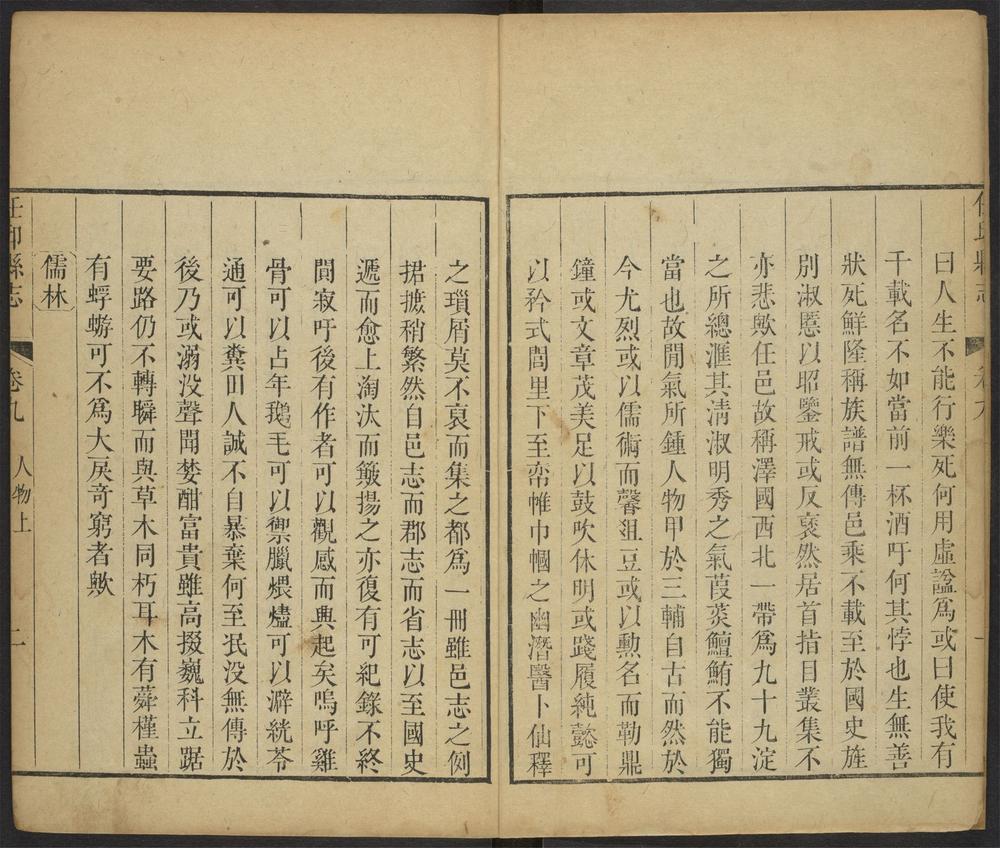 曰人生不能行樂死何用虛諡爲或曰使我有
千載名不如當前一杯酒吁何其悖也生無善
狀死鮮隆稱族譜無傳邑乘不載至於國史旌
別淑慝以昭鑒戒或反裒然居首指目叢集不
亦悲歟任邑故稱澤國西北一帶爲九十九淀
之所總滙其淸淑明秀之氣葭菼鱣鮪不能獨
當也故閒氣所鍾人物甲於三輔自古而然於
今尤烈或以儒術而馨俎豆或以勲名而勒鼎
鐘或文章茂美足以鼓吹休明或踐履純懿可
以矜式閭里下至帘帷巾幗之幽潛醫卜仙釋
之瑣屑莫不哀而集之都爲一冊雖邑志之例
捃摭稍繁然自邑志而郡志而省志以至國史
遞而愈上淘汰而簸揚之亦復有可紀錄不終
閴寂吁後有作者可以觀感而興起矣嗚呼雞
骨可以占年鵝毛可以禦臘煨燼可以澼絖苓
通可以糞田人誠不自暴棄何至泯没無傳於
後乃或溺没聲聞婪酣富貴雖高掇巍科立踞
要路仍不轉瞬而與草木同朽耳木有蕣槿蟲
有蜉蝣可不爲大戾奇窮者歟
儒林
任邱縣志 卷九 人物上 二